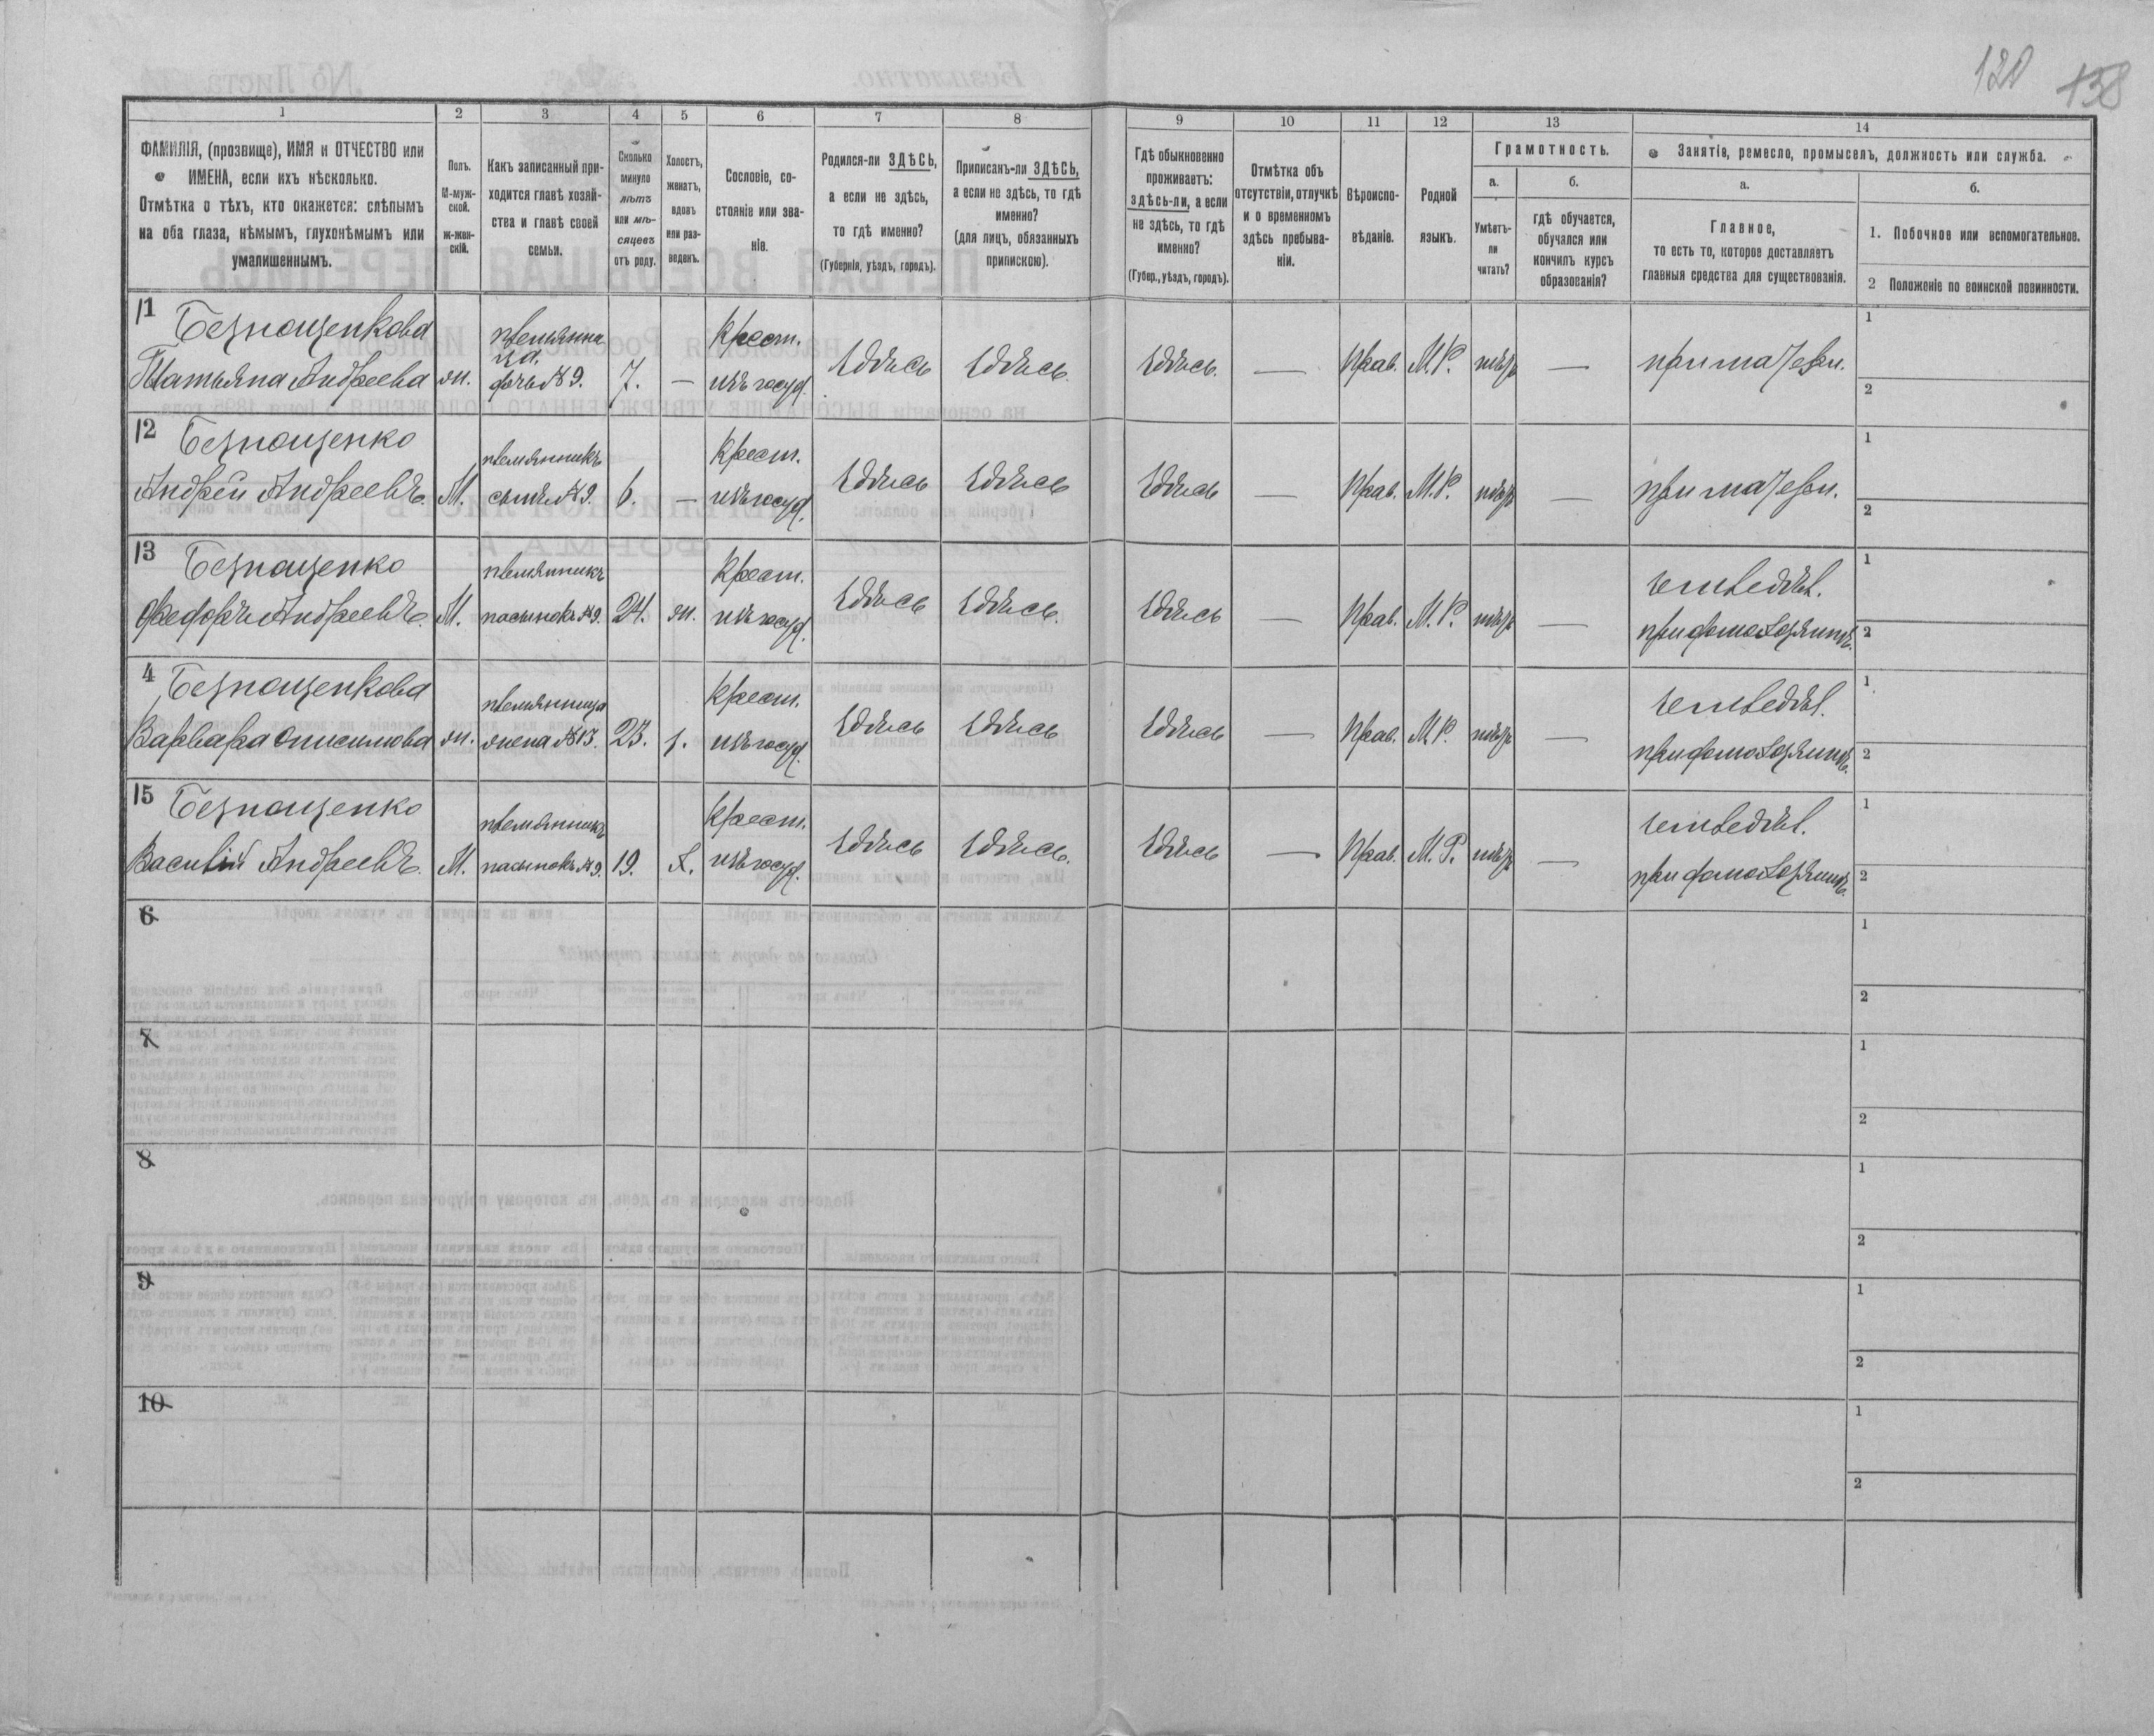 120 138
1 2 3 4 5 6 7 8 9 10 11 12 13 14
ФАМИЛІЯ, (прозвище), ИМЯ и ОТЧЕСТВО или
ИМЕНА, если ихъ нѣсколько.
Отмѣтка о тѣхъ, кто окажется: слѣпымъ
на оба глаза, нѣмымъ, глухонѣмымъ или
умалишеннымъ.
Полъ.
М-муж-
ской.
Ж-жен-
скій.
Какъ записанный при-
ходится главѣ хозяй-
ства и главѣ своей
семьи.
Сколько
минуло
лѣтъ
или мѣ-
сяцевъ
отъ роду.
Холостъ,
женатъ,
вдовъ
или раз-
веденъ.
Сословіе, со-
стояніе или зва-
ніе.
Родился-ли ЗДѢСЬ,
а если не здѣсь,
то гдѣ именно?
(Губернія, уѣздъ, городъ).
Приписанъ-ли ЗДѢСЬ,
а если не здѣсь, то гдѣ
именно?
(для лицъ, обязанныхъ
припискою).
Гдѣ обыкновенно
проживаетъ:
здѣсь-ли, а если
не здѣсь, то гдѣ
именно?
(Губер., уѣздъ, городъ).
Отмѣтка объ
отсутствіи, отлучкѣ
и о временномъ
здѣсь пребыва-
ніи.
Вѣроиспо-
вѣданіе.
Родной
языкъ.
Грамотность.
а.
Умѣетъ-
ли
читать?
б.
гдѣ обучается,
обучался или
кончилъ курсъ
образованія?
Занятіе, ремесло, промыселъ, должность или служба.
а.
Главное,
то есть то, которое доставляетъ
главныя средства для существованія.
б.
1. Побочное или вспомогательное.
2 Положеніе по воинской повинности.
11 Безпощенкова племянни Крест. 1
ца.
Татьяна Андреева ж. дочь №9. 7. — изъ госуд. Здѣсь Здѣсь. Здѣсь. — Прав. М.Р. нѣтъ — при матери. 2
12 Безпощенко племянникъ Крест. 1
Андрей Андреевъ. М. сынъ №9. 6. — изъ госуд. Здѣсь Здѣсь Здѣсь — Прав. М.Р. нѣтъ — при матери. 2
13 Безпощенко племянникъ Крест. земледѣл. 1
Федоръ Андреевъ. М. пасынокъ №9. 24. ж. изъ госуд. Здѣсь Здѣсь. Здѣсь — Прав. М.Р. нѣтъ — при домохозяинѣ. 2
14 Безпощенкова племянница Крест. земледѣл. 1
Варвара Онисимова ж. жена №13. 23. з. изъ госуд. Здѣсь Здѣсь Здѣсь — Прав. М.Р. нѣтъ — при домохозяинѣ. 2
15 Безпощенко племянникъ Крест. земледѣл. 1
Василій Андреевъ. М. пасынокъ №9. 19. х. изъ госуд. Здѣсь Здѣсь. Здѣсь — Прав. М.Р. нѣтъ — при домохозяинѣ. 2
6 1
2
7 1
2
8 1
2
9 1
2
10 1
2